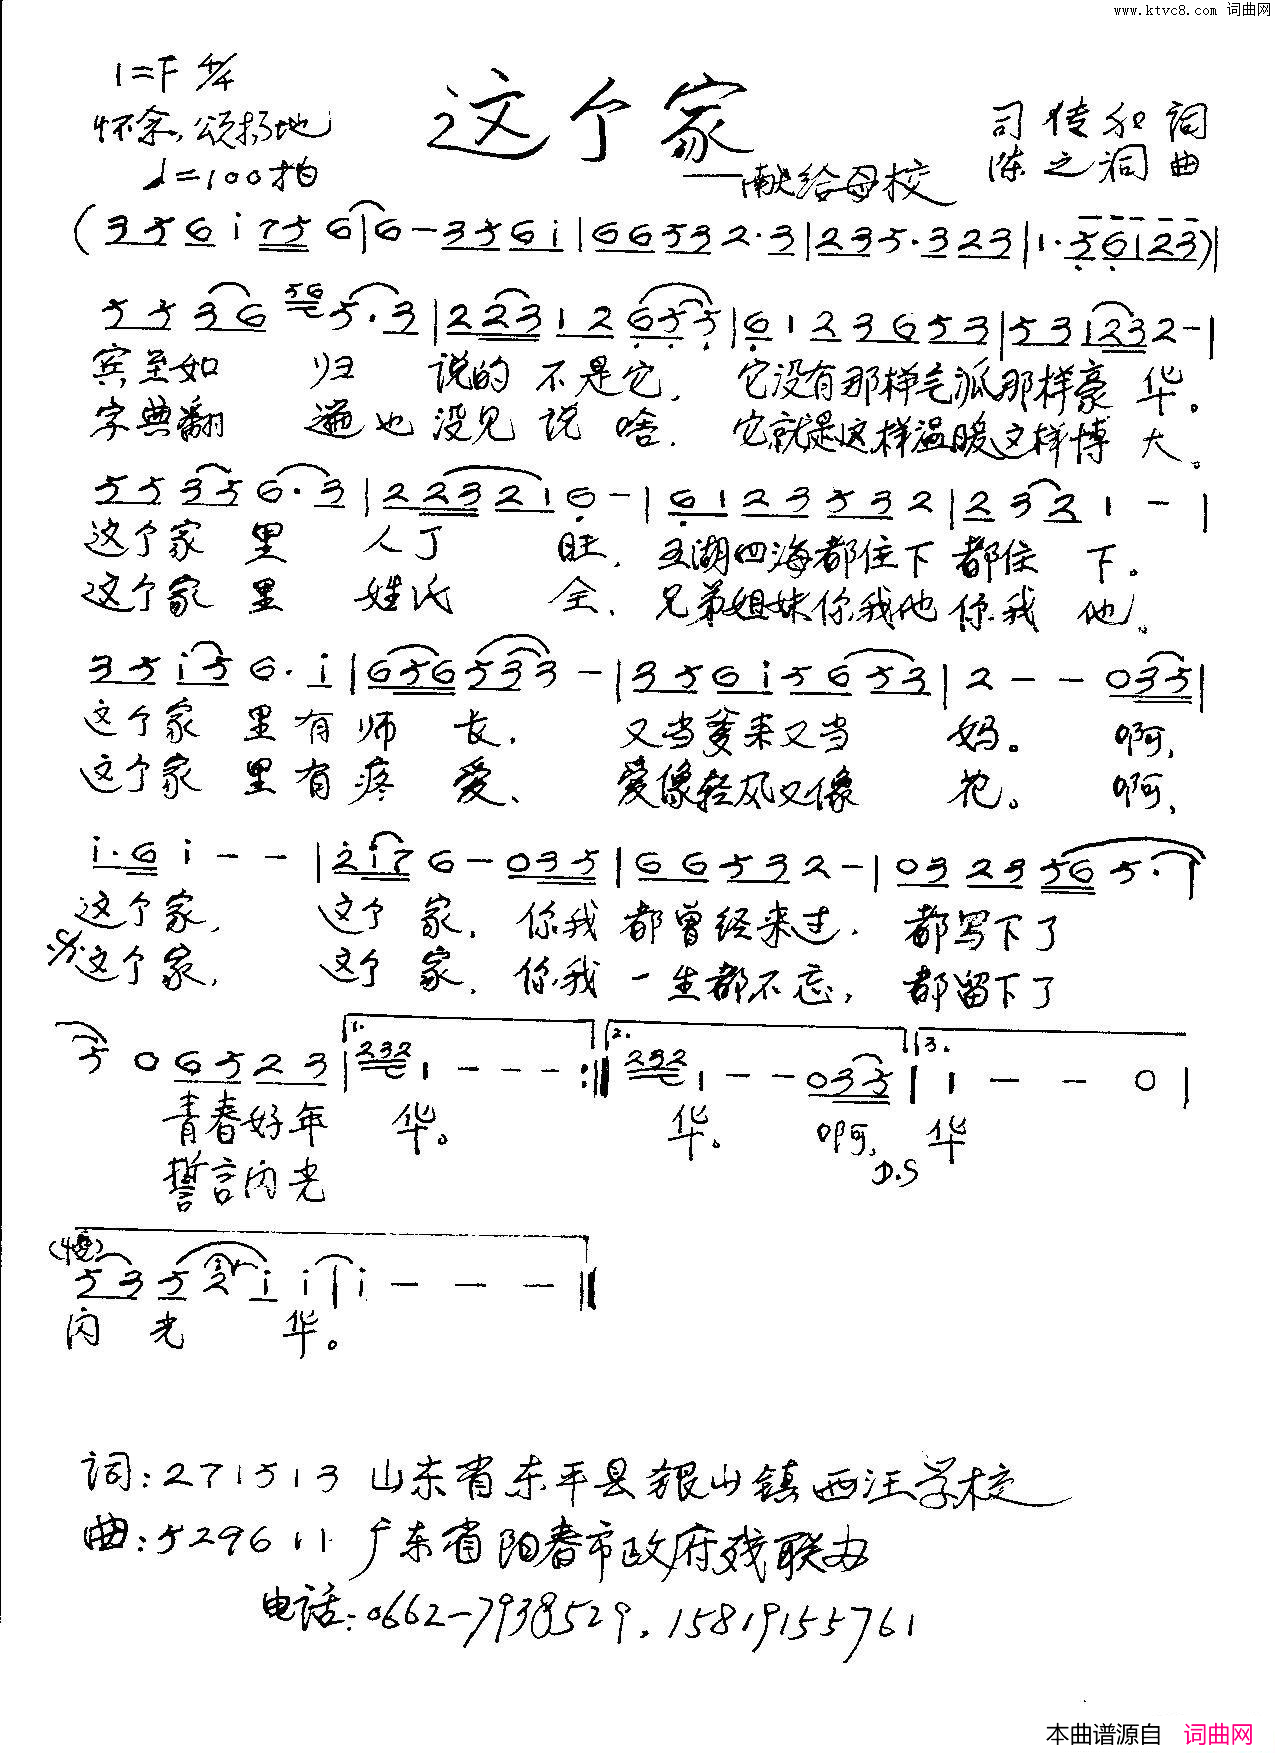 www.ktvc8.com 词曲网
1=F 4/4
这个家
司传和 词
怀念,颂扬地
陈之洞 曲
♩=100拍
——献给母校
(3 5 6 i 7 5 6 | 6 - 3 5 6 i | 6 6 5 3 2 · 3 | 2 3 5 · 3 2 3 | 1 · 5 6 1 2 3) |
5 5 3 6 56 5 · 3 | 2 2 3 1 2 6 5 5 | 6 1 2 3 6 5 3 | 5 3 1 2 3 2 - |
宾至如 归 说的 不是它, 它没有那样气派那样豪 华。
字典翻 遍 也 没见 说 啥, 它就是这样温暖这样博 大。
5 5 3 5 6 · 3 | 2 2 3 2 1 6 - | 6 1 2 3 5 3 2 | 2 3 2 1 - |
这个家 里 人丁 旺, 五湖四海都住下 都住 下。
这个家 里 姓氏 全, 兄弟姐妹你我他 你我 他。
3 5 i 5 6 · i | 6 5 6 5 3 3 - | 3 5 6 i 5 6 5 3 | 2 - - 0 3 5 |
这个家 里有师 长, 又当爹来又当 妈。 啊,
这个家 里有疼 爱, 爱像轻风又像 花。 啊,
i · 6 i - - | 2 i 7 6 - 0 3 5 | 6 6 5 3 2 - | 0 3 2 3 5 6 5 · |
这个家, 这个 家, 你我 都曾经来过, 都写下了
这个家, 这个 家, 你我 一生都不忘, 都留下了
5 0 6 5 2 3 | 1. 232 1 - - - :‖ 2. 232 1 - - 0 3 5 | 3. 1 - - 0 |
青春好年 华。 华。 啊, 华
誓言闪光 D.S
(慢)
5 3 5 2 i i | i - - - ‖
闪 光 华。
词: 271513 山东省东平县银山镇西汪学校
曲: 529611 广东省阳春市政府残联办
电话: 0662-7938529, 15819155761
本曲谱源自 词曲网